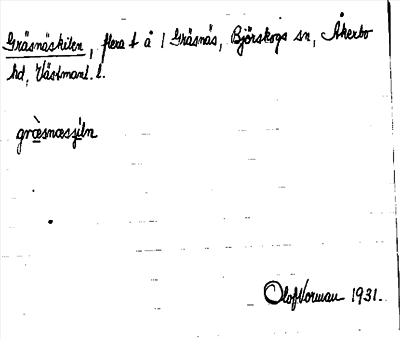 Gräsnäskilen, flera t å 1 Gräsnäs, Björskogs sn, Åkerbo
hd, Västmanl. l.
græ̀snæsꞩiln
Olof Norman 1931.